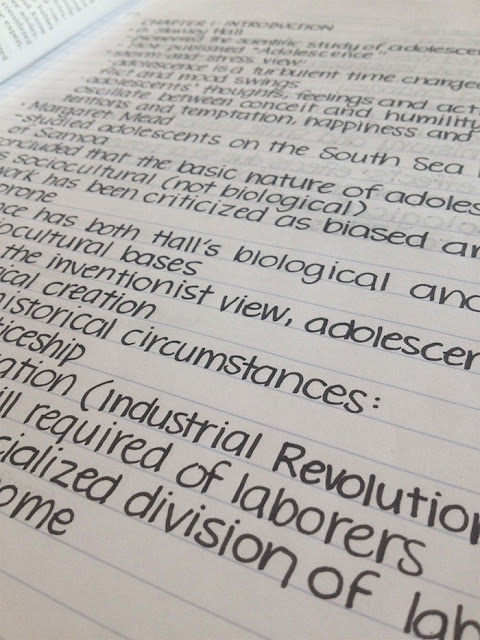 CHAPTER 1: INTRODUCTION
G. Stanley Hall
pioneered the scientific study of adolescen
1904 published "Adolescence"
storm and stress view:
adolescence is a turbulent time charged
flict and mood swings
adolescents' thoughts, feelings and act
oscillate between conceit and humility
tentions and temptation, happiness and
• Margaret Mead
-studied adolescents on the South Sea I
of Samoa
oncluded that the basic nature of adoles
s sociocultural (not biological)
work has been criticized as biased an
prone
nce has both Hall's biological and
ciocultural bases
the inventionist view, adolescen
ical creation
historical circumstances:
ticeship
ation (Industrial Revolution
ill required of laborers
cialized division of lab
ome